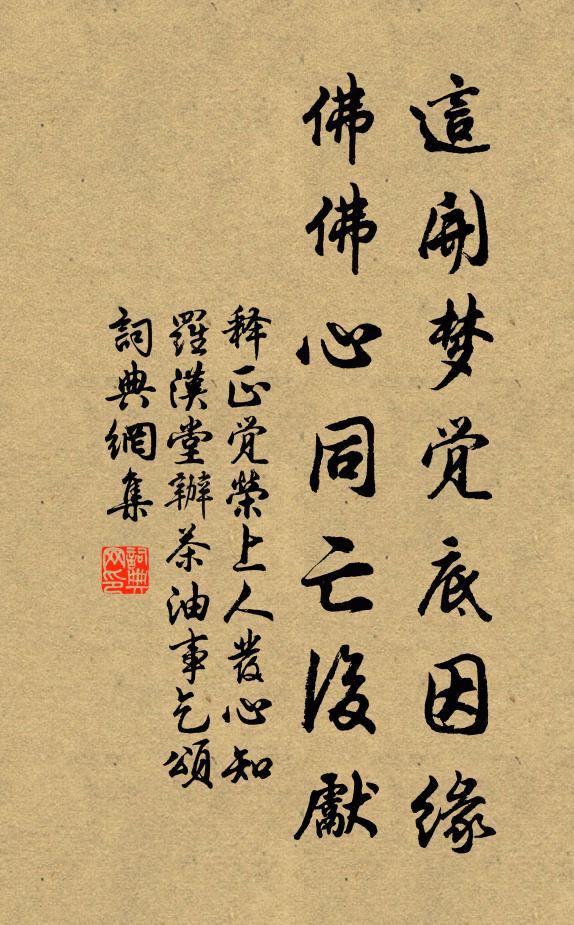 這開梦觉底因缘
佛佛心同亡後獻
释正觉榮上人發心知
羅漢堂辦茶油事乞頌
詞典網集
詞典网印